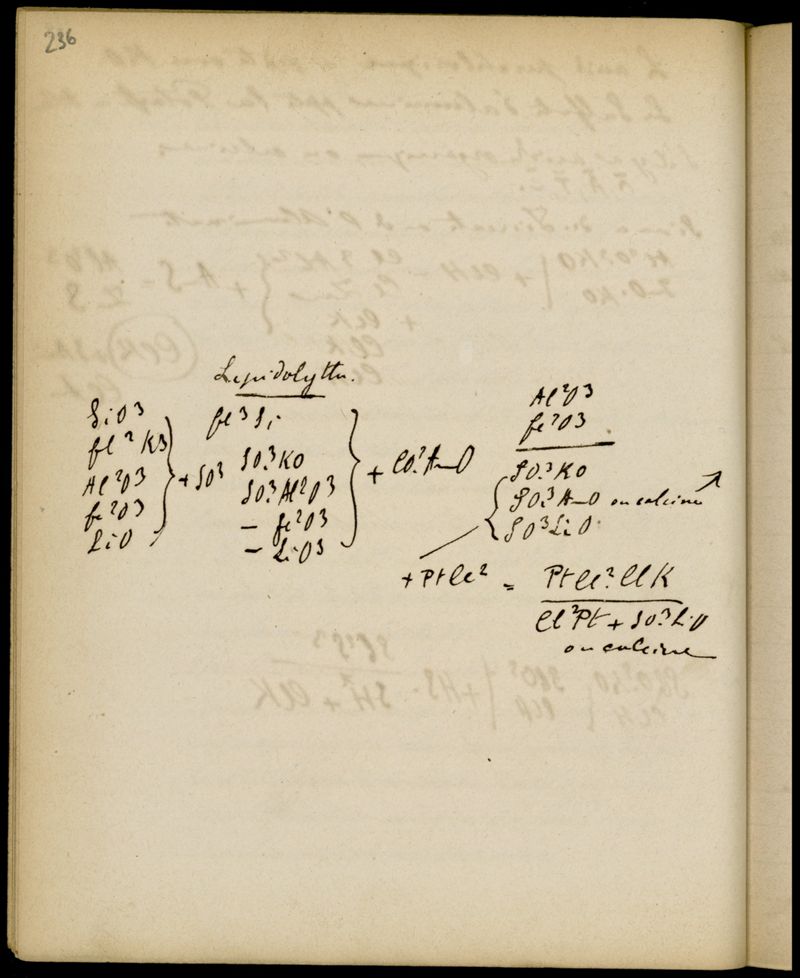 236
Lepidolythe.
SiO3
fl2 K3
Al2O3
fe2O3
LiO
+ SO3
fl3 Si
SO3. KO
SO3. Al2O3
— fe2O3
— LiO3
+ CO2. AmO
Al2O3
fe2O3
SO3. KO
SO3. AmO on calcine
SO3 LiO
+ PtCl2 = PtCl2. ClK
Cl2Pt + SO3. LiO
on calcine